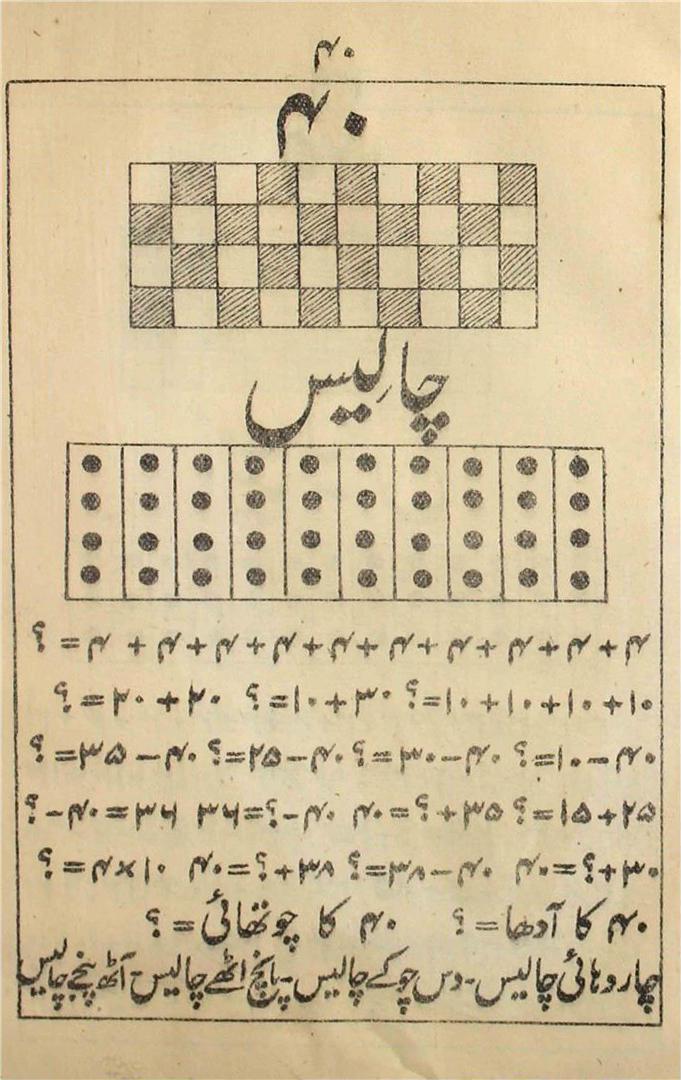 ۴۰
۴۰
چالیس
۴ + ۴ + ۴ + ۴ + ۴ + ۴ + ۴ + ۴ + ۴ + ۴ = ؟
۱۰+۱۰+۱۰+۱۰=؟ ۳۰+۱۰=؟ ۲۰+۲۰=؟
۴۰−۱۰=؟ ۴۰−۳۰=؟ ۴۰−۲۵=؟ ۴۰−۳۵=؟
۲۵+۱۵=؟ ۳۵+؟=۴۰ ۴۰−؟=۳۶ ۳۶=۴۰−؟
۳۰+؟=۴۰ ۴۰−۳۸=؟ ۳۸+؟=۴۰ ۱۰×۴=؟
۴۰ کا آدھا=؟ ۴۰ کا چوتھائی=؟
چار دہائی چالیس۔ دس چوکے چالیس۔ پانچ اٹھے چالیس۔ آٹھ پنجے چالیس